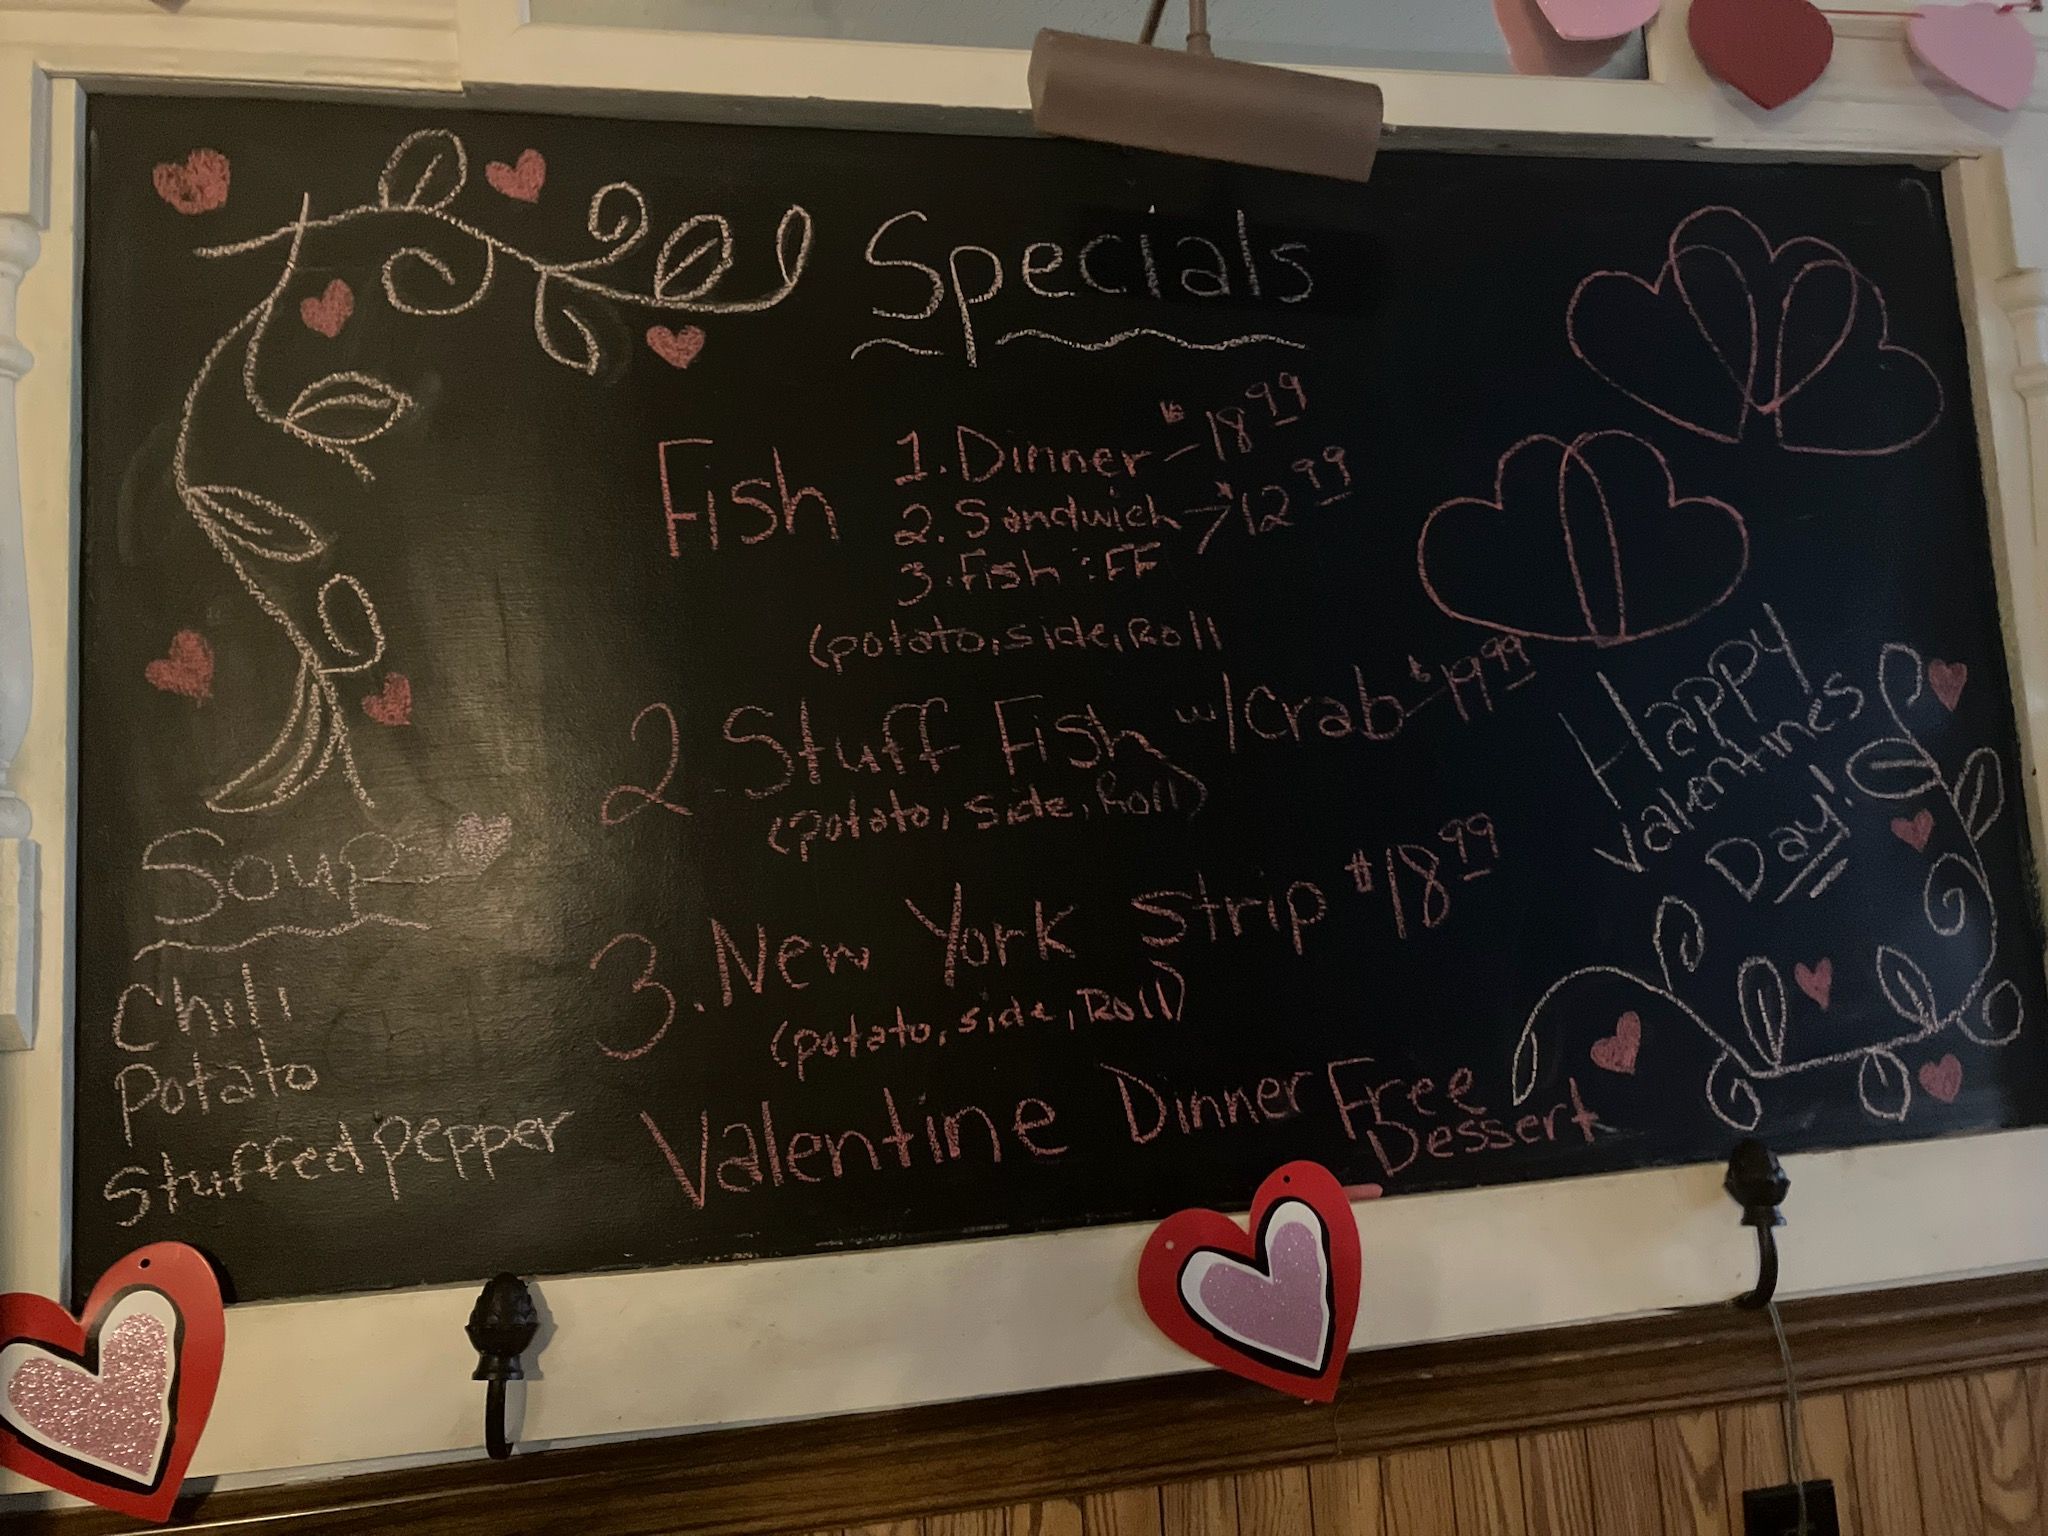 Specials
Fish
1. Dinner - $18.99
2. Sandwich > $12.99
3. Fish : FF
(potato, side, Roll
2 Stuff Fish w/Crab $19.99
(potato, side, Roll)
3. New York Strip $18.99
(potato, side, Roll)
Valentine Dinner Free
Dessert
Soup
Chili
Potato
Stuffed pepper
Happy
Valentines
Day!